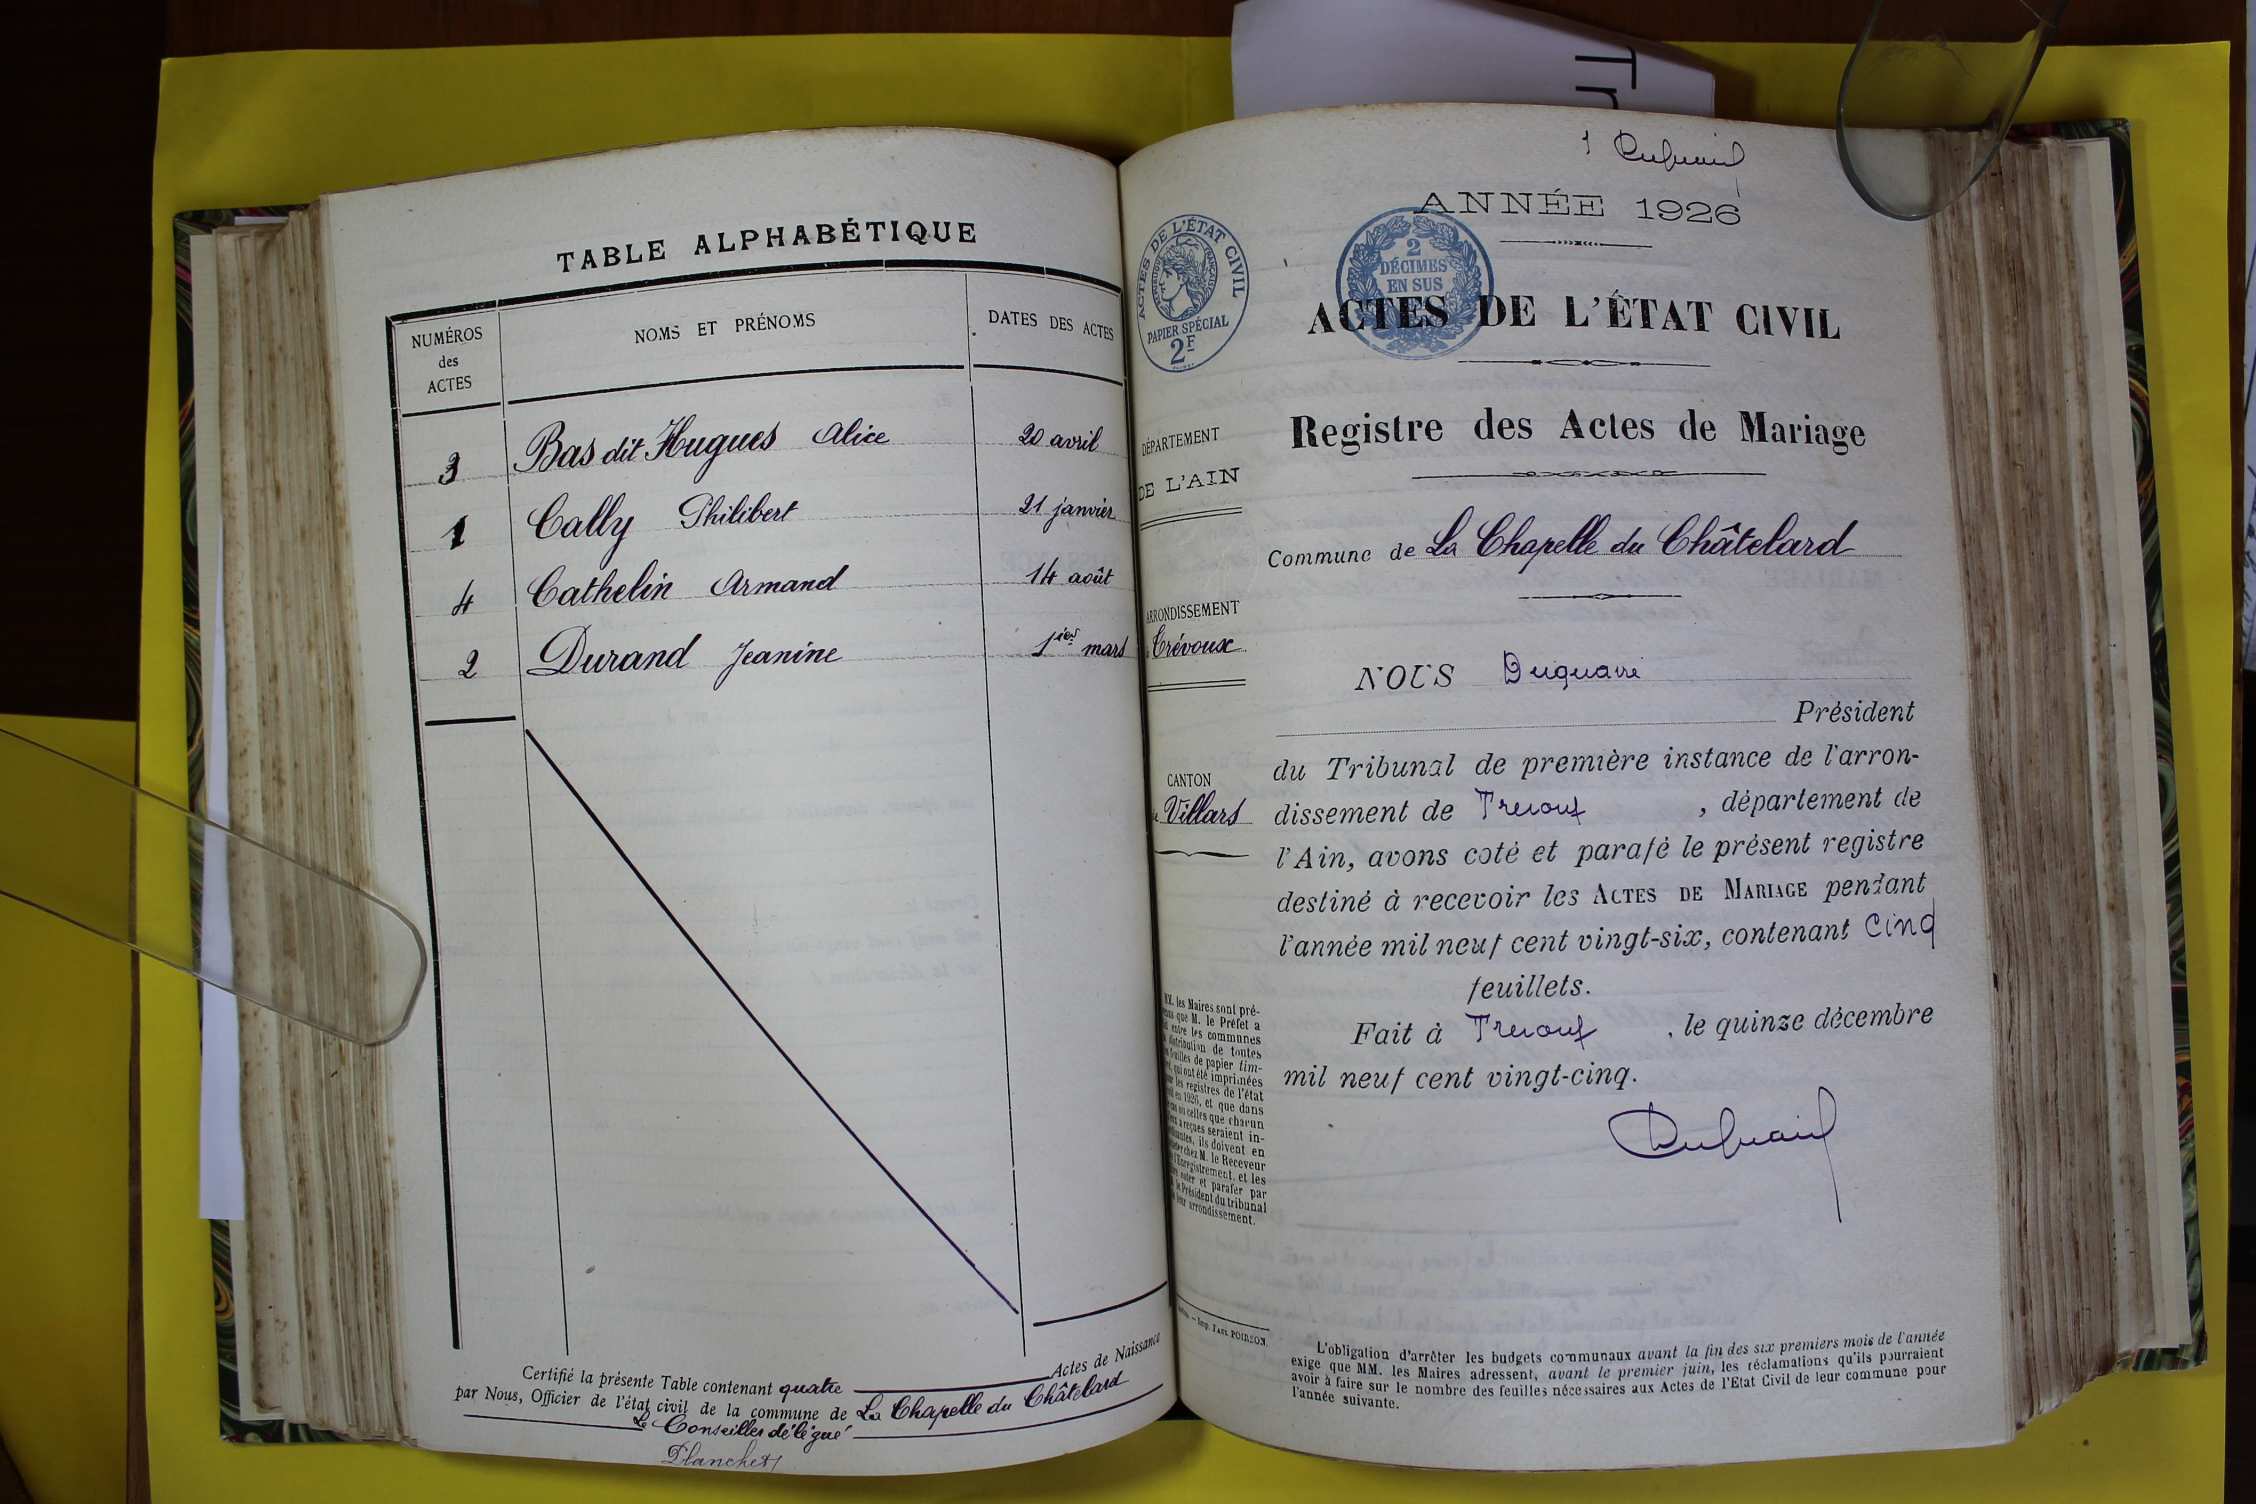 Tr
TABLE ALPHABÉTIQUE
NUMÉROS des ACTES
NOMS ET PRÉNOMS
DATES DES ACTES
3 Bas dit Hugues Alice 20 avril
1 Cally Philibert 21 janvier
4 Cathelin Armand 14 août
2 Durand Jeanine 1ier mars
Certifié la présente Table contenant quatre Actes de Naissance
par Nous, Officier de l'état civil de la commune de La Chapelle du Châtelard
Le Conseiller délégué
Planchet
1
ANNÉE 1926
ACTES DE L'ÉTAT CIVIL
RÉPUBLIQUE FRANÇAISE
PAPIER SPÉCIAL
2F
2
DÉCIMES
EN SUS
ACTES DE L'ÉTAT CIVIL
Registre des Actes de Mariage
DÉPARTEMENT
DE L'AIN
Commune de La Chapelle du Châtelard
ARRONDISSEMENT
Trévoux
CANTON
Villars
NOUS Duquaire
Président
du Tribunal de première instance de l'arron-
dissement de Trevoux, département de
l'Ain, avons coté et parafé le présent registre
destiné à recevoir les ACTES DE MARIAGE pendant
l'année mil neuf cent vingt-six, contenant cinq
feuillets.
Fait à Trevoux, le quinze décembre
mil neuf cent vingt-cinq.
MM. les Maires sont pré-
que M. le Préfet a
entre les communes
distribution de toutes
feuilles de papier tim-
qui ont été imprimées
les registres de l'état
en 1926, et que dans
ou celles que chacun
reçues seraient in-
ils doivent en
chez M. le Receveur
l'Enregistrement, et les
coter et parafer par
le Président du tribunal
leur arrondissement.
Imp. PAUL POIRSON
L'obligation d'arrêter les budgets communaux avant la fin des six premiers mois de l'année
exige que MM. les Maires adressent, avant le premier juin, les réclamations qu'ils pourraient
avoir à faire sur le nombre des feuilles nécessaires aux Actes de l'Etat Civil de leur commune pour
l'année suivante.